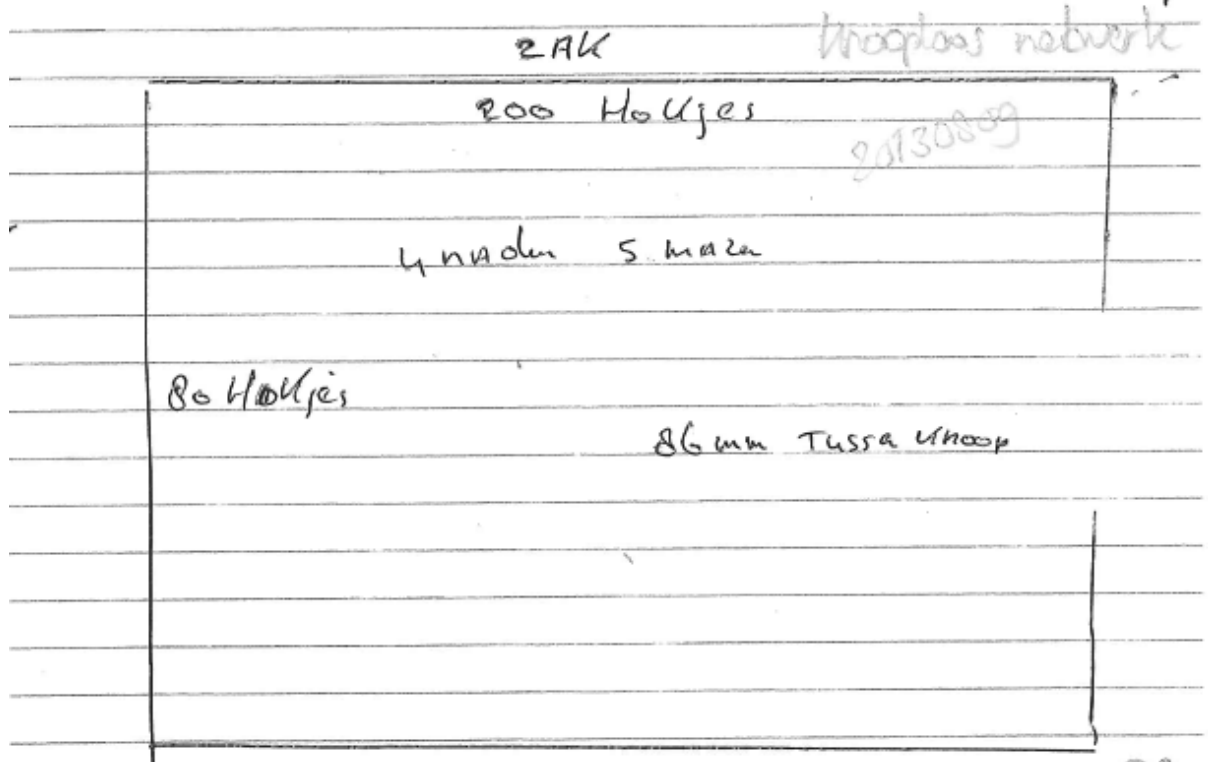 ZAK
knooploos netwerk
200 Hokjes
20130809
4 naden 5 mazen
80 Hokjes
86 mm Tussen knoop